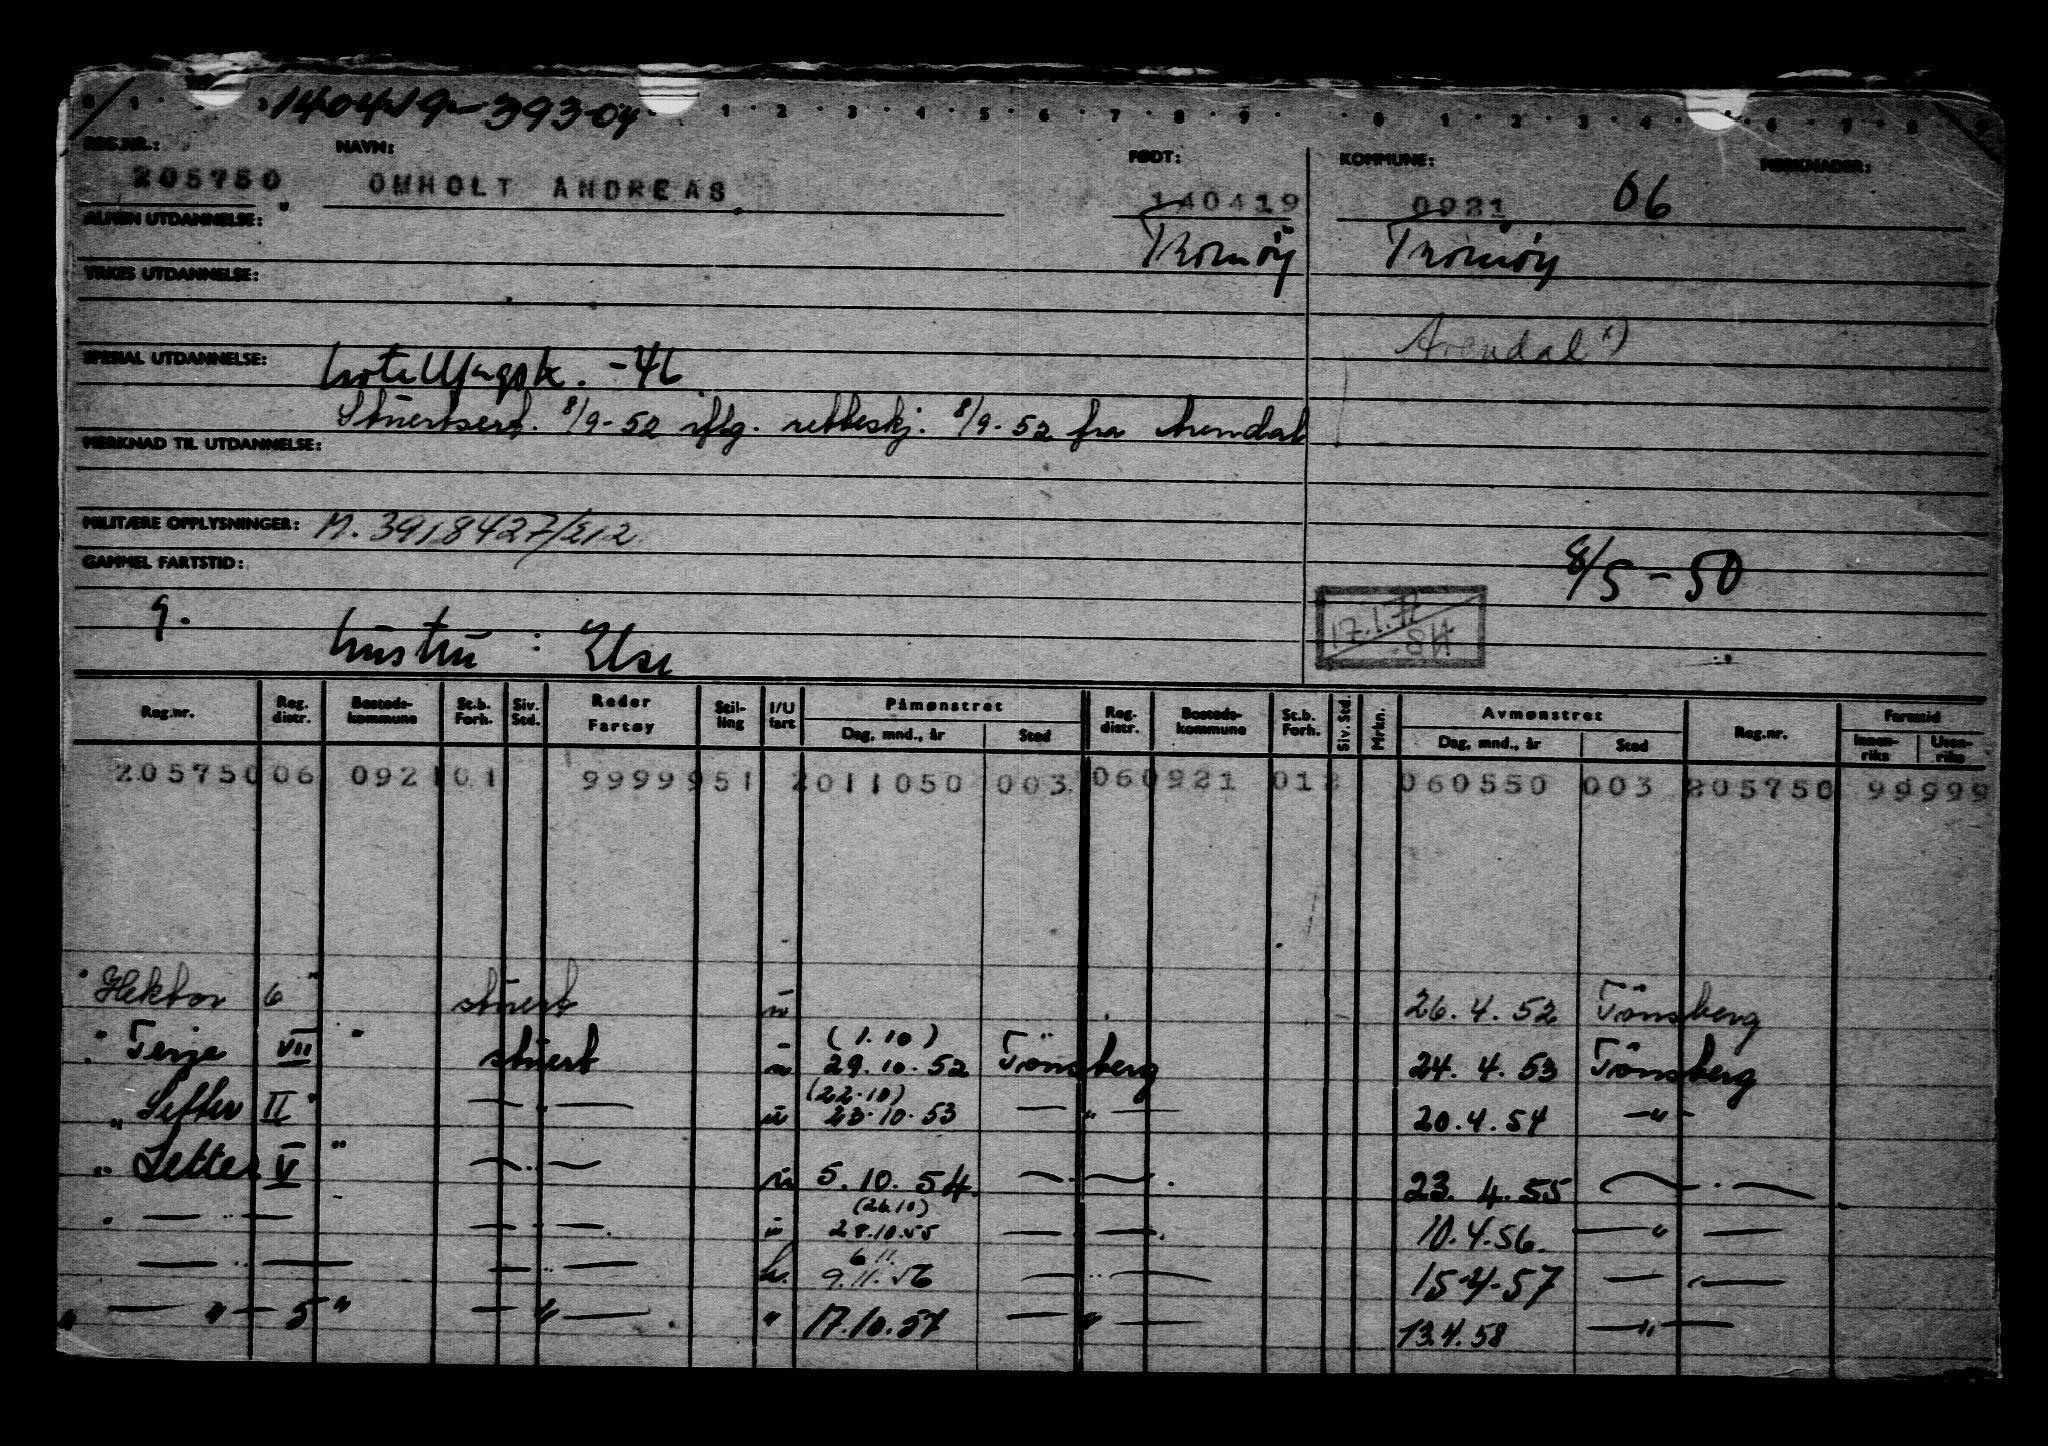 140419-393-04
REG.NR.: NAVN: FØDT: KOMMUNE: MERKNADER:
205750 OMHOLT ANDREAS 140419 0921 06
ALMEN UTDANNELSE: Tromöy Tromöy
YRKES UTDANNELSE:
Arendal x)
SPESIAL UTDANNELSE: -46
Stuertsert. 8/9-52 iflg. rettbeskj. 8/9-52 fra Arendal
MERKNAD TIL UTDANNELSE:
MILITÆRE OPPLYSNINGER: M. 3918427/E12
GAMMEL FARTSTID: 8/5-50
g. hustru : Else
17.1.72
SH
Reg.nr. Reg. distr. Bosteds-kommune St.b. Forh. Siv. Std. Reder Fartøy Stil-ling I/U fart Påmønstret Reg. distr. Bosteds-kommune St.b. Forh. Siv. Std. Mrkn. Avmønstret Reg.nr. Fartstid
Dag, mnd., år Sted Dag, mnd., år Sted Innen-riks Uten-riks
205750 06 0921 01 9999951 2011050 003 060921 012 060550 003 205750 99999
"Hektor 6" stuert u 26.4.52 Tönsberg
(1.10)
"Terje VII" stuert u 29.10.52 Tönsberg 24.4.53 Tönsberg
(22.10)
" II" — " — u 23.10.53 — " — 20.4.54 — " —
"Setter V" — " — u 5.10.54. — " — 23.4.55 — " —
(26.10)
— " — — " — u 28.10.55 — " — 10.4.56. — " —
6 11.
— " — — " — u. 9.11.56 — " — 15-4-57 — " —
" — " — 5" — " — " 17.10.57 — " — 13.4.58 — " —